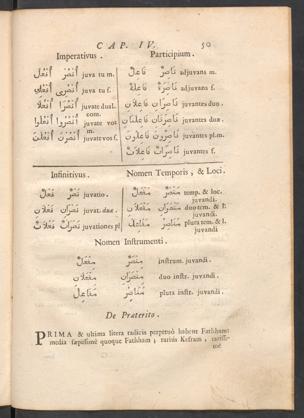 CAP. IV. 50
Imperativus. Participium.
أُنْصُرْ أُفْعُلْ juva tu m. نَاصِرٌ فَاعِلٌ adjuvans m.
أُنْصُرِي أُفْعُلِي juva tu f. نَاصِرَةٌ فَاعِلَةٌ adjuvans f.
أُنْصُرَا أُفْعُلَا juvate dual. com. نَاصِرَانِ فَاعِلَانِ juvantes duo.
أُنْصُرُوا أُفْعُلُوا juvate vos m. نَاصِرَتَانِ فَاعِلَتَانِ juvantes duæ.
أُنْصُرْنَ أُفْعُلْنَ juvate vos f. نَاصِرُونَ فَاعِلُونَ juvantes pl.m.
نَاصِرَاتٌ فَاعِلَاتٌ juvantes f.
Infinitivus. Nomen Temporis, & Loci.
نَصْرٌ فَعْلٌ juvatio. مَنْصَرٌ مَفْعَلٌ temp. & loc. juvandi.
نَصْرَانِ فَعْلَانِ juvat. duæ. مَنْصَرَانِ مَفْعَلَانِ duo tem. & l. juvandi.
نَصْرَاتٌ فَعْلَاتٌ juvationes pl مَنَاصِرُ مَفَاعِلُ plura tem. & l. juvandi
Nomen Instrumenti.
مِنْصَرٌ مِفْعَلٌ instrum. juvandi.
مِنْصَرَانِ مِفْعَلَانِ duo instr. juvandi.
مَنَاصِرُ مَفَاعِلُ plura instr. juvandi.
De Præterito.
PRIMA & ultima litera radicis perpetuò habent Fathham:
media sæpissimè quoque Fathham; rariùs Kesram, rarissi-
mè